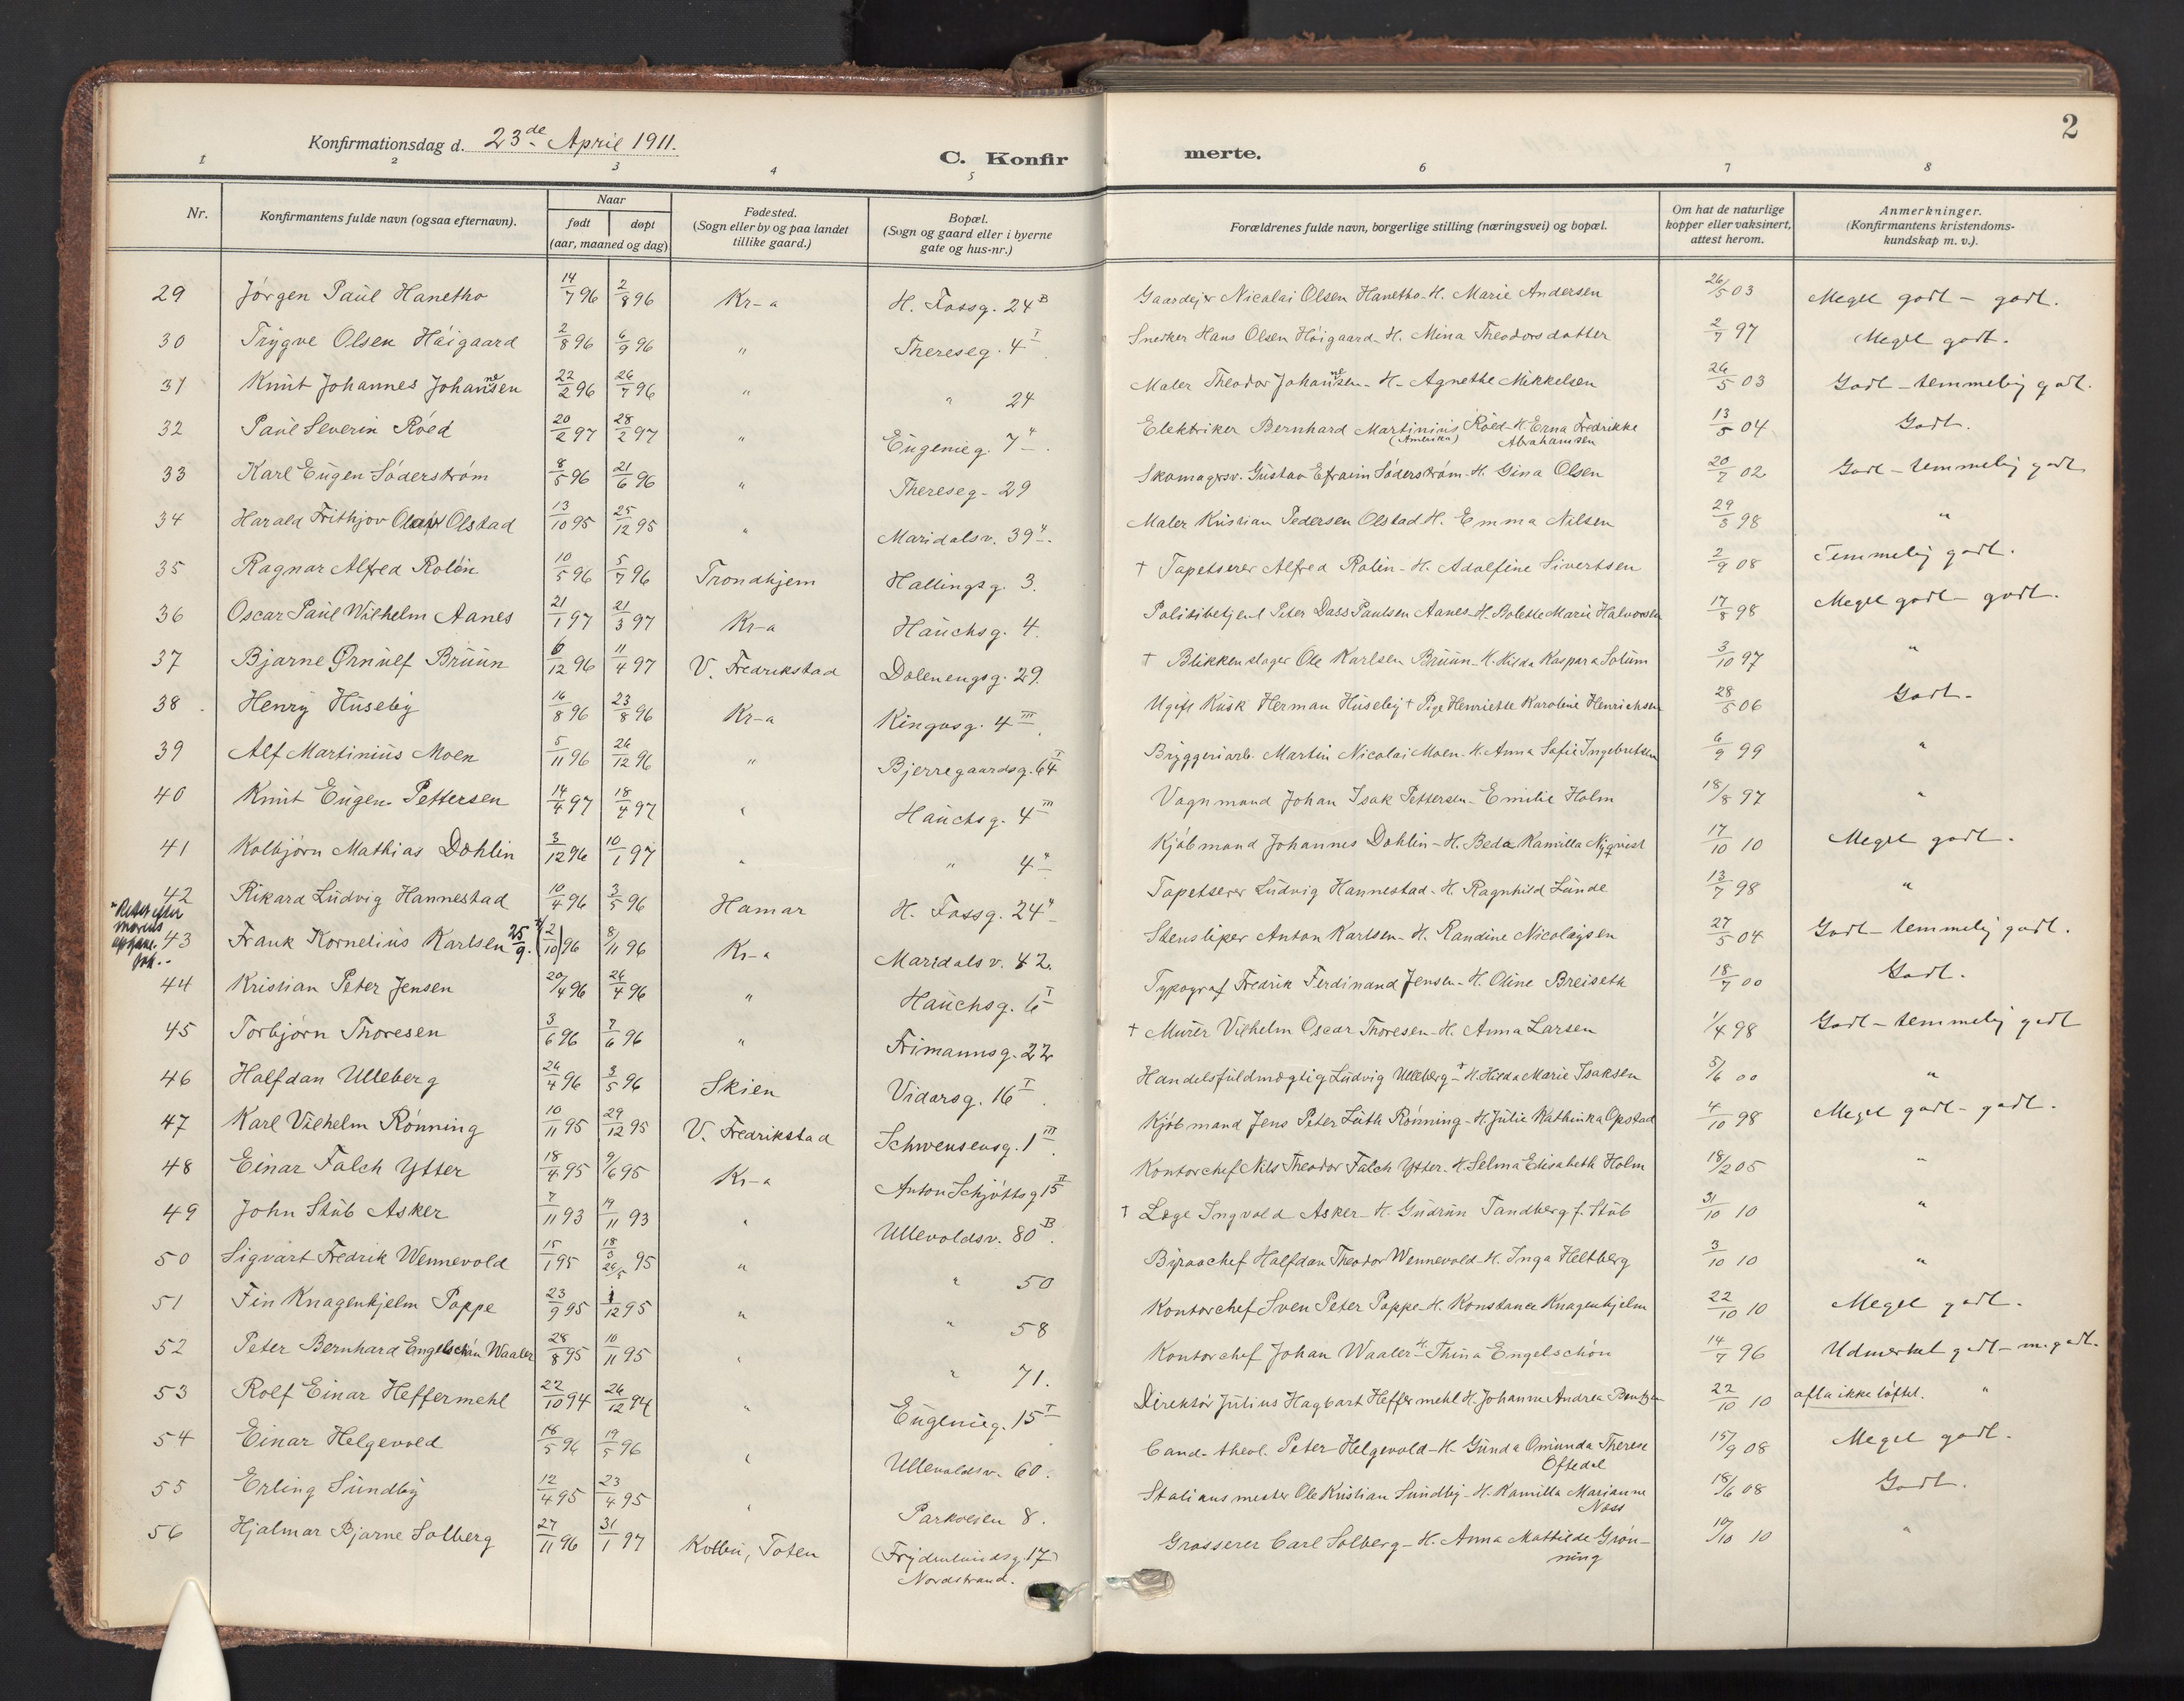 2
Konfirmationsdag d. 23de April 1911.
C. Konfir merte.
1 2 3 4 5 6 7 8
Nr. | Konfirmantens fulde navn (ogsaa efternavn). | Naar født | døpt (aar, maaned og dag) | Fødested. (Sogn eller by og paa landet tillike gaard.) | Bopæl. (Sogn og gaard eller i byerne gate og hus-nr.) | Forældrenes fulde navn, borgerlige stilling (næringsvei) og bopæl. | Om hat de naturlige kopper eller vaksinert, attest herom. | Anmerkninger. (Konfirmantens kristendoms-kundskap m. v.).
29 Jörgen Paul Hanetho 14/7 96 2/8 96 Kr-a H. Fossg. 24 B Gaardejer Nicolai Olsen Hanetho - H. Marie Andersen 26/5 03 Meget godt - godt.
30 Trygve Olsen Höigaard 2/8 96 6/9 96 " Thereseg. 4 I Snerker Hans Olsen Höigaard - H. Mina Theodorsdatter 2/7 97 Meget godt.
31 Knut Johannes Johannesen 22/2 96 26/7 96 " " 24 Maler Theodor Johannesen - H. Agnethe Mikkelsen 26/5 03 Godt - temmelig godt.
32 Paul Severin Röed 20/2 97 28/2 97 " Eugenieg. 7 " Elektriker Bernhard Martinius (Amerika) Röed - H. Erna Fredrikke Abrahamsen 13/5 04 Godt.
33 Karl Eugen Söderström 8/5 96 21/6 96 " Thereseg - 29 Skomagersv. Gustav Efraim Söderström - H. Gina Olsen 20/7 02 Godt - temmelig godt
34 Harald Frithjov Olaf Olstad 13/10 95 25/12 95 " Maridalsv. 39 ". Maler Kristian Pedersen Olstad H. Emma Nilsen 29/8 98 "
35 Ragnar Alfred Rolin 10/5 96 5/7 96 Trondhjem Hallingsg. 3. † Tapetserer Alfred Rolin - H. Adolfine Sivertsen 2/9 08 Temmelig godt.
36 Oscar Paul Wilhelm Aanes 21/1 97 21/3 97 Kr-a Hauchsg. 4. Politibetjent Peter Dass Paulsen Aanes - H. Bolette Marie Halvorsen 17/8 98 Meget godt - godt.
37 Bjarne Ørnulf Bruun 6/12 96 11/4 97 V. Fredrikstad Dælenengsg. 29. † Blikkenslager Ole Karlsen Bruun - H. Hilda Kaspara Solum 3/10 97 "
38 Henry Huseby 16/8 96 23/8 96 Kr-a Kingosg. 4 III. Ugift Kusk Herman Huseby † Pige Henriette Karoline Henrichsen 28/5 06 Godt.
39 Alf Martinius Moen 5/11 96 26/12 96 " Bjerregaardsg. 64 I Bryggeriarb. Martin Nicolai Moen - H. Anna Sofie Ingebretsen 6/9 99 "
40 Knut Eugen Pettersen 14/4 97 18/4 97 " Hauchsg. 4 III Vognmand Johan Isak Pettersen - Emilie Holm 18/8 97 "
41 Kolbjörn Mathias Dahlin 3/12 96 10/1 97 " " 4 " Kjöbmand Johannes Dahlin - H. Beda Kamilla Nyqvist 17/10 10 Meget godt.
42 Rikard Ludvig Hannestad 10/4 96 3/5 96 Hamar H. Fossg. 24 " Tapetserer Ludvig Hannestad - H. Ragnhild Lunde 13/7 98 "
* Rettet efter
43 Frank Kornelius Karlsen 25/9. (2/10) 96 8/11 96 Kr-a Maridalsv. 42. Stensliper Anton Karlsen - H. Randine Nicolaysen 27/5 04 Godt - temmelig godt.
44 Kristian Peter Jensen 20/4 96 26/4 96 " Hauchsg. 6 I Typograf Fredrik Ferdinand Jensen - H. Oline Breiseth 18/7 00 Godt.
45 Torbjörn Thoresen 3/6 96 7/6 96 " Frimannsg. 22 † Murer Vilhelm Oscar Thoresen - H. Anna Larsen 1/4 98 Godt - temmelig godt
46 Halfdan Ulleberg 26/4 96 3/5 96 Skien Vidarsg. 16 I. Handelsfuldmægtig Ludvig Ulleberg - † H. Hilda Marie Isaksen 5/6 00 "
47 Karl Vilhelm Rönning 10/11 95 29/12 95 V. Fredrikstad Schwensensg. 1 III. Kjöbmand Jens Peter Luth Rönning - H. Julie Kathinka Opstad 4/10 98 Meget godt - godt.
48 Einar Falch Ytter 18/4 95 9/6 95 Kr-a Anton Schjöttsg 15 II Kontorchef Nils Theodor Falch Ytter - H. Selma Elisabeth Holm 18/2 05 "
49 John Stub Asker 7/11 93 19/11 93 " Ullevoldsv. 80 B. † Læge Ingvald Asker - H. Gudrun Tandberg f. Stub 31/10 10 "
50 Sigvart Fredrik Wennevold 15/1 95 18/3 26/5 95 " " 50 Byraachef Halfdan Theodor Wennevold - H. Inga Heltberg 3/10 10 "
51 Fin Knagenhjelm Poppe 23/9 95 1/12 95 " " 58 Kontorchef Sven Peter Poppe - H. Konstance Knagenhjelm 22/10 10 Meget godt.
52 Peter Bernhard Engelschiøn Waaler 28/8 95 10/11 95 " " 71. Kontorchef Johan Waaler - H. Thina Engelschön 14/7 96 Udmerket godt - m. godt.
53 Rolf Einar Heffermehl 22/10 94 26/12 94 " Eugenieg. 15 I Direktör Julius Hagbart Heffermehl H. Johanne Andrea Bentzen 22/10 10 afla ikke löftet. "
54 Einar Helgevold 18/5 96 19/5 96 " Ullevoldsv. 60. Cand. theol. Peter Helgevold - H. Gunda Omunda Therese Oftedal 15/9 08 Meget godt.
55 Erling Sundby 12/4 95 23/4 95 " Parkveien 8. Stationsmester Ole Kristian Sundby - H. Kamilla Marianne Næss 18/6 08 Godt.
56 Hjalmar Bjarne Solberg 27/11 96 31/1 97 Kolbu, Toten (Frydenlundsg. 17) Nordstrand. Grosserer Carl Solberg - H. Anna Mathilde Grönning 10/10 10 "